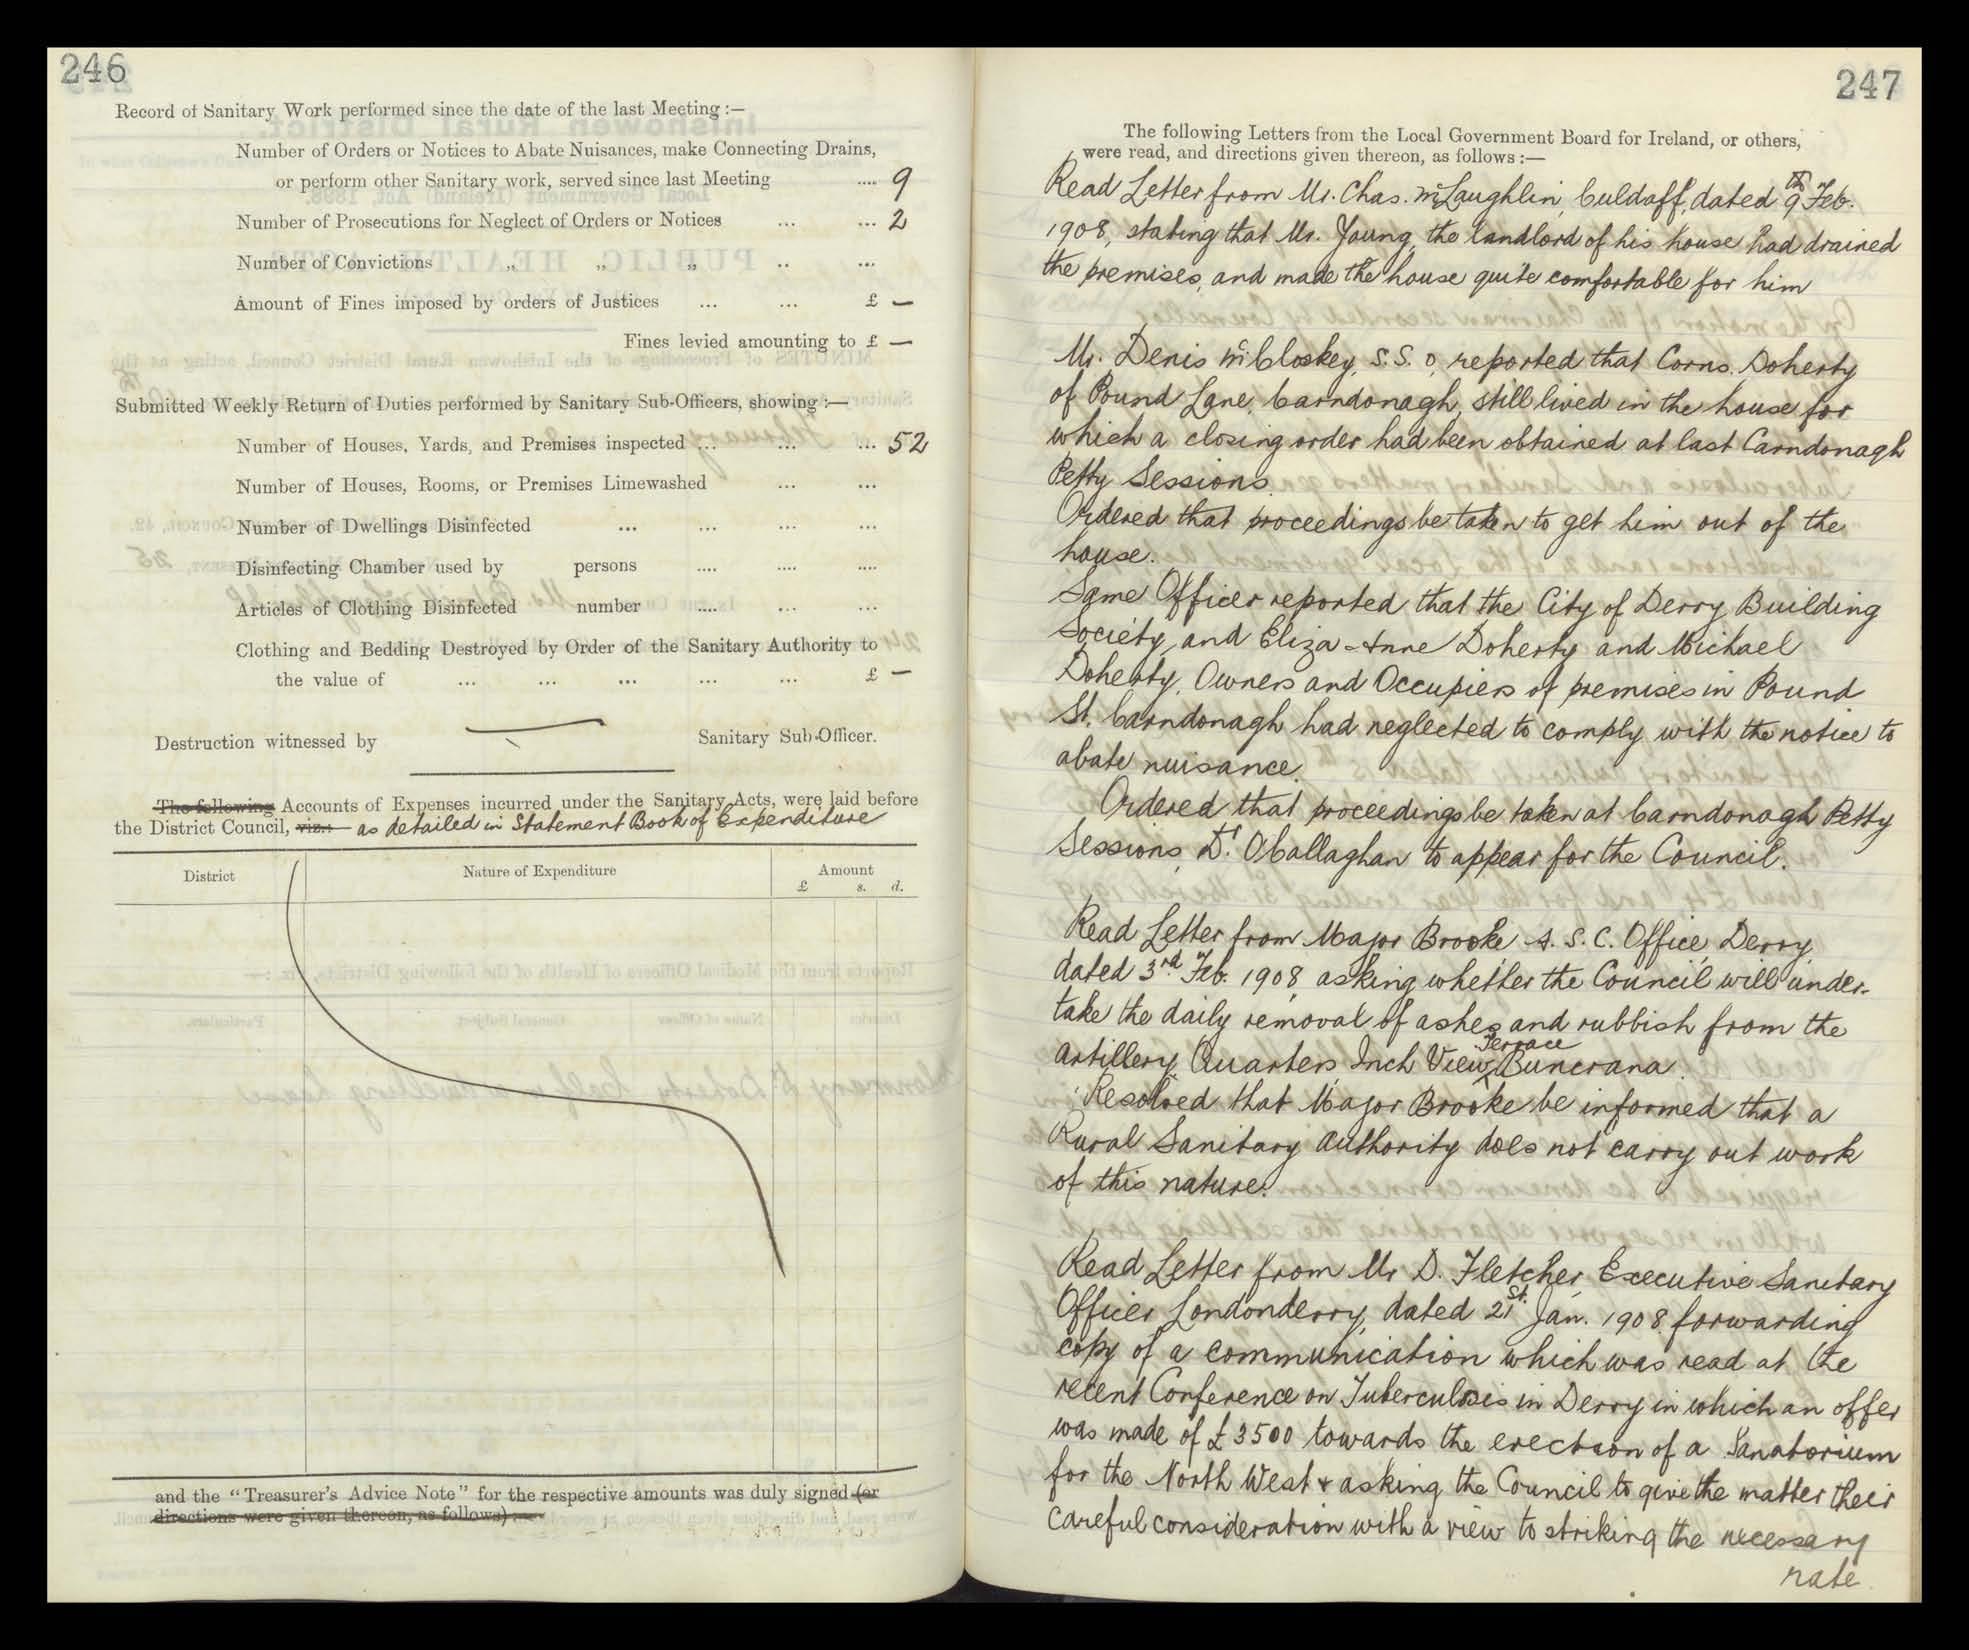 246
Record of Sanitary Work performed since the date of the last Meeting :—
Number of Orders or Notices to Abate Nuisances, make Connecting Drains,
or perform other Sanitary work, served since last Meeting .... 9
Number of Prosecutions for Neglect of Orders or Notices ... ... 2
Number of Convictions „ „ „ .. ...
Amount of Fines imposed by orders of Justices ... ... £ —
Fines levied amounting to £ —
Submitted Weekly Return of Duties performed by Sanitary Sub-Officers, showing :—
Number of Houses, Yards, and Premises inspected ... ... ... 52
Number of Houses, Rooms, or Premises Limewashed ... ...
Number of Dwellings Disinfected ... ... ... ...
Disinfecting Chamber used by persons .... .... ....
Articles of Clothing Disinfected number .... ... ...
Clothing and Bedding Destroyed by Order of the Sanitary Authority to
the value of ... ... ... ... ... £ —
Destruction witnessed by — Sanitary Sub-Officer.
The following Accounts of Expenses incurred under the Sanitary Acts, were laid before
the District Council, viz.:— as detailed in Statement Book of Expenditure
District Nature of Expenditure Amount
£ s. d.
and the "Treasurer's Advice Note" for the respective amounts was duly signed (or
directions were given thereon, as follows) :—
247
The following Letters from the Local Government Board for Ireland, or others,
were read, and directions given thereon, as follows :—
Read Letter from Mr. Chas. McLaughlin, Culdaff, dated 9th Feb.
1908, stating that Mr. Young, the landlord of his house had drained
the premises, and made the house quite comfortable for him
Mr. Denis McCloskey, S.S.O, reported that Corns. Doherty
of Pound Lane, Carndonagh, still lived in the house for
which a closing order had been obtained at last Carndonagh
Petty Sessions.
Ordered that proceedings be taken to get him out of the
house.
Same Officer reported that the City of Derry Building
Society, and Eliza Anne Doherty and Michael
Doherty, Owners and Occupiers of premises in Pound
St. Carndonagh had neglected to comply with the notice to
abate nuisance.
Ordered that proceedings be taken at Carndonagh Petty
Sessions, Dr. O'Callaghan to appear for the Council.
Read Letter from Major Brooke A.S.C. Office, Derry,
dated 3rd Feb. 1908, asking whether the Council will under-
take the daily removal of ashes and rubbish from the
Artillery Quarters, Inch View Terrace, Buncrana.
Resolved that Major Brooke be informed that a
Rural Sanitary Authority does not carry out work
of this nature.
Read Letter from Mr D. Fletcher, Executive Sanitary
Officer Londonderry, dated 21st. Jan. 1908 forwarding
copy of a communication which was read at the
recent Conference on Tuberculosis in Derry in which an offer
was made of £3500 towards the erection of a Sanatorium
for the North West & asking the Council to give the matter their
careful consideration with a view to striking the necessary
rate